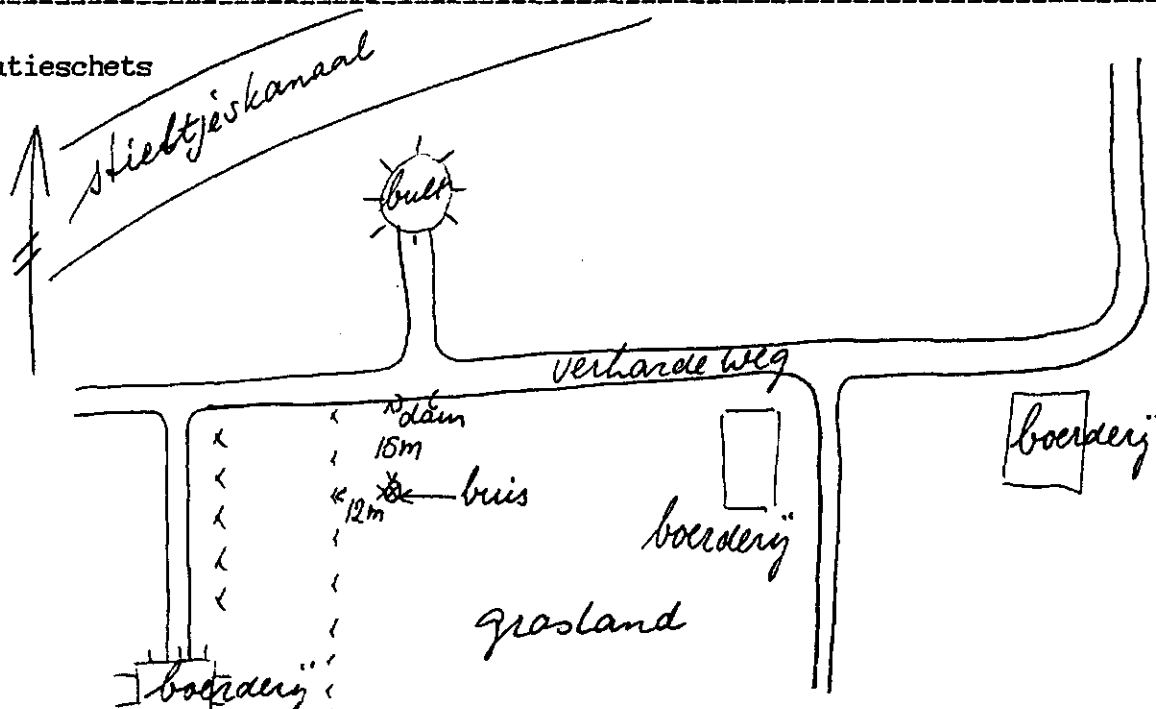 utieschets
stieltjeskanaal
bult
verharde weg
dam
15m
boerderij
12m
buis
boerderij
grasland
boerderij